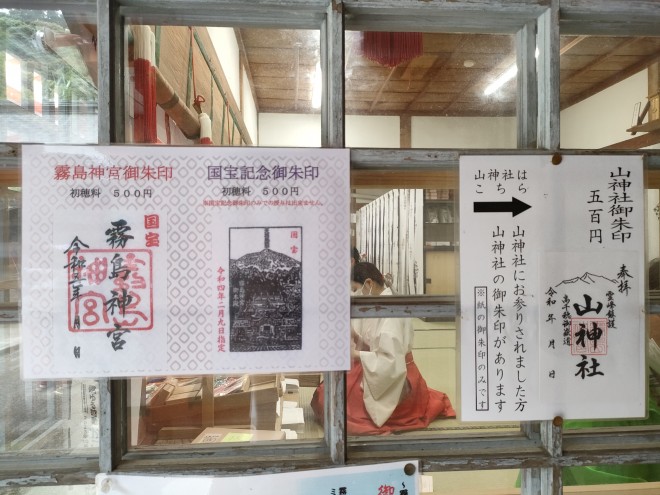 霧島神宮御朱印
初穂料 500円
国宝
霧島神宮
令和 年 月 日
国宝記念御朱印
初穂料 500円
国宝
令和四年二月九日指定
山神社
こちら
は
山神社にお参りされました方
山神社の御朱印があります
※紙の御朱印のみです
山神社御朱印
五百円
奉拝
霊峰鎮護
高千穂御嶽道
山神社
令和 年 月 日
御
霧